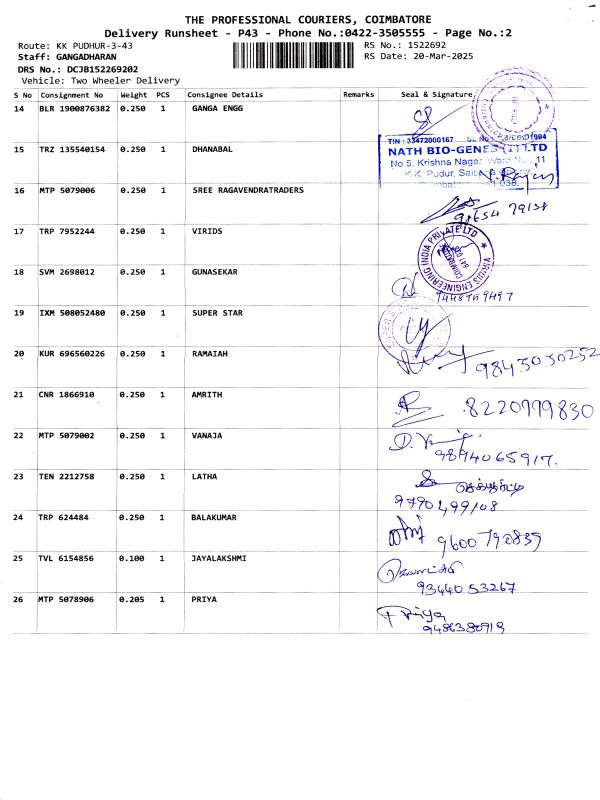 THE PROFESSIONAL COURIERS, COIMBATORE
Delivery Runsheet - P43 - Phone No.:0422-3505555 - Page No.:2
Route: KK PUDHUR-3-43 RS No.: 1522692
Staff: GANGADHARAN RS Date: 20-Mar-2025
DRS No.: DCJB152269202
Vehicle: Two Wheeler Delivery
S No Consignment No Weight PCS Consignee Details Remarks Seal & Signature
14 BLR 1900876382 0.250 1 GANGA ENGG
TIN : 33472000167
15 TRZ 135540154 0.250 1 DHANABAL
NATH BIO-GENES (I) LTD
No.5, Krishna Nagar, Ward No.: 11
K.K. Pudur,
16 MTP 5079006 0.250 1 SREE RAGAVENDRATRADERS
17 TRP 7952244 0.250 1 VIRIDS
VIRIDIS ENGINEERING INDIA PRIVATE LTD
18 SVM 2698012 0.250 1 GUNASEKAR
19 IXM 508052480 0.250 1 SUPER STAR
20 KUR 696560226 0.250 1 RAMAIAH
9843030252
21 CNR 1866910 0.250 1 AMRITH
8220999830
22 MTP 5079002 0.250 1 VANAJA
9894065917.
23 TEN 2212758 0.250 1 LATHA
9790499108
24 TRP 624484 0.250 1 BALAKUMAR
9600790839
25 TVL 6154856 0.100 1 JAYALAKSHMI
9344053267
26 MTP 5078906 0.205 1 PRIYA
Priya
9486380919